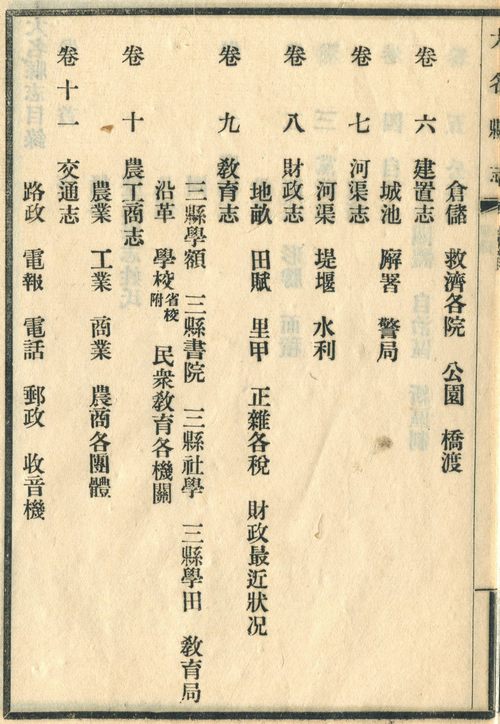 大名縣志
倉儲 救濟各院 公園 橋渡
卷六 建置志
城池 廨署 警局
卷七 河渠志
河渠 堤堰 水利
卷八 財政志
地畝 田賦 里甲 正雜各稅 財政最近狀況
卷九 教育志
三縣學額 三縣書院 三縣社學 三縣學田 教育局
沿革 學校附省校 民衆教育各機關
卷十 農工商志
農業 工業 商業 農商各團體
卷十一 交通志
路政 電報 電話 郵政 收音機